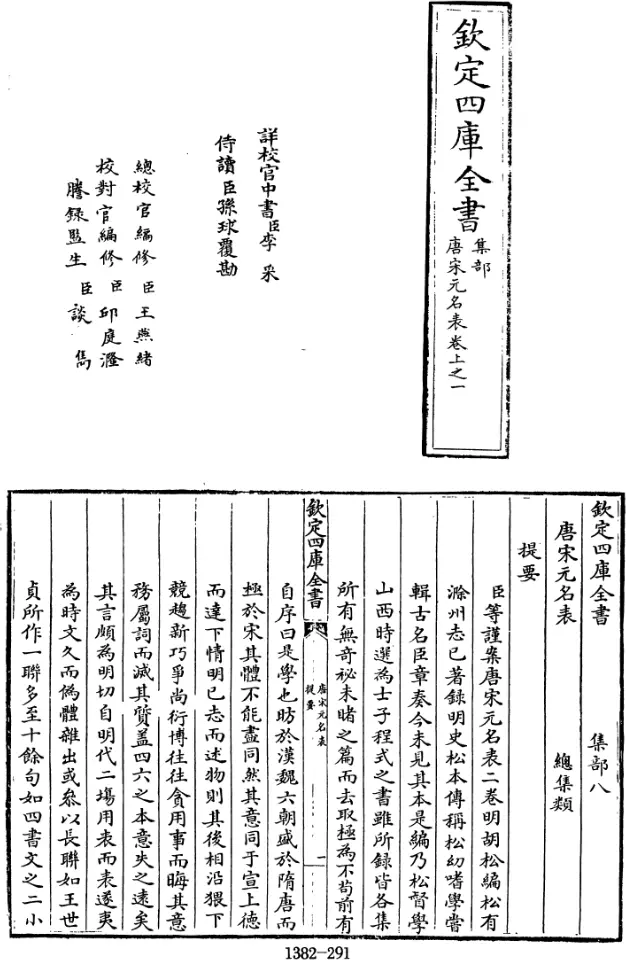 欽定四庫全書
集部
唐宋元名表卷上之一
詳校官中書臣李采
侍讀臣孫球覆勘
總校官編修臣王燕緒
校對官編修臣邱庭漋
謄錄監生臣談雋
欽定四庫全書 集部八
唐宋元名表 總集類
提要
臣等謹案唐宋元名表二卷明胡松編松有
滁州志已著錄明史松本傳稱松幼嗜學嘗
輯古名臣章奏今未見其本是編乃松督學
山西時選為士子程式之書雖所錄皆各集
所有無奇祕未睹之篇而去取極為不苟前有
欽定四庫全書
唐宋元名表
提要
一
自序曰是學也昉於漢魏六朝盛於隋唐而
極於宋其體不能盡同然其意同于宣上德
而達下情明已志而述物則其後相沿猥下
競趨新巧爭尚衍博往往貪用事而晦其意
務屬詞而滅其質蓋四六之本意失之遠矣
其言頗為明切自明代二場用表而表遂夷
為時文久而偽體雜出或叅以長聯如王世
貞所作一聯多至十餘句如四書文之二小
1382-291